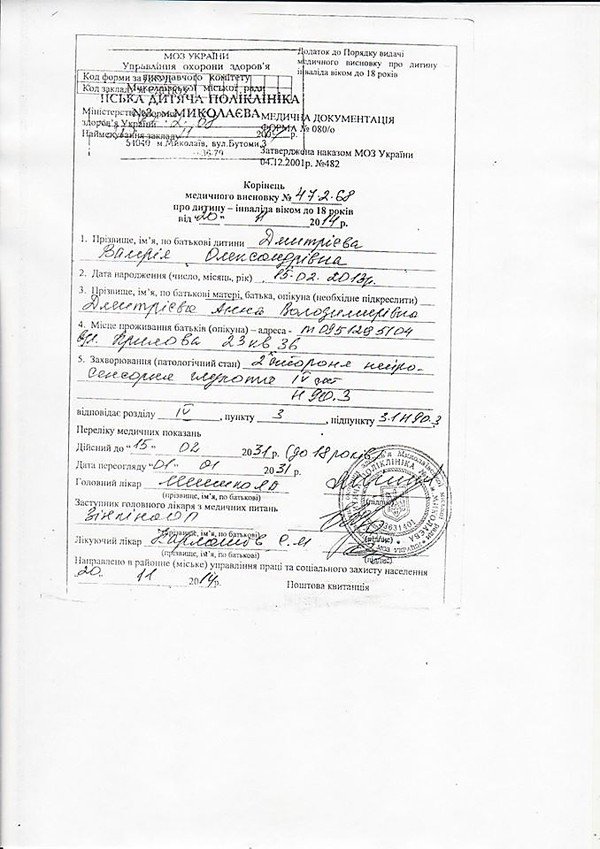 МОЗ УКРАЇНИ
Управління охорони здоров'я
виконавчого комітету
Миколаївської міської ради
Додаток до Порядку видачі
медичного висновку про дитину
інваліда віком до 18 років
Код форми за
Код закладу за
МІСЬКА ДИТЯЧА ПОЛІКЛІНІКА
№3 м. МИКОЛАЄВА
Міністерство
здоров'я України
Найменування закладу
м.Миколаїв, вул.Бутоми,3
МЕДИЧНА ДОКУМЕНТАЦІЯ
ФОРМА № 080/о
Затверджена наказом МОЗ України
04.12.2001р. №482
Корінець
медичного висновку № 472.68
про дитину – інваліда віком до 18 років
від "20" 11 2014р.
1. Прізвище, ім'я, по батькові дитини Дмитрієва
Валерія Олександрівна
2. Дата народження (число, місяць, рік) 15.02.2013р.
3. Прізвище, ім'я, по батькові матері, батька, опікуна (необхідне підкреслити)
Дмитрієва Анна Володимирівна
4. Місце проживання батьків (опікуна) – адреса - т0951295104
вул. Крилова 23 кв 36
5. Захворювання (патологічний стан) 2 стороння нейро-
сенсорна глухота IV ст
H 90.3
відповідає розділу IV, пункту 3, підпункту 3.1 H90.3
Переліку медичних показань
Дійсний до "15" 02 2031р. (до 18 років)
Дата переогляду "01" 01 2031р.
Головний лікар
(прізвище, ім'я, по батькові)
(підпис)
Заступник головного лікаря з медичних питань
(прізвище, ім'я, по батькові)
(підпис)
Лікуючий лікар
(прізвище, ім'я, по батькові)
(підпис)
Направлено в районне (міське) управління праці та соціального захисту населення
20. 11 2014р.
Поштова квитанція